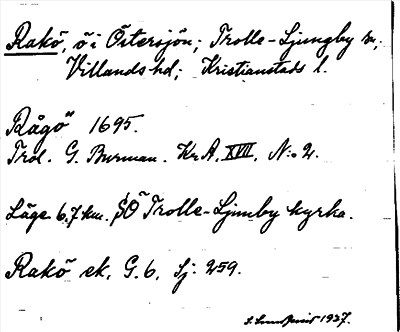 Rakö, ö i Östersjön; Trolle-Ljungby sn;
Villands hd; Kristianstads l.
Rågö" 1695.
Trol. G. Burman. Kr.A. XVII. N:o 2.
Läge 6,7 km. SO Trolle-Ljunby kyrka.
Rakö ek. G. 6. Sj. 259.
1937.